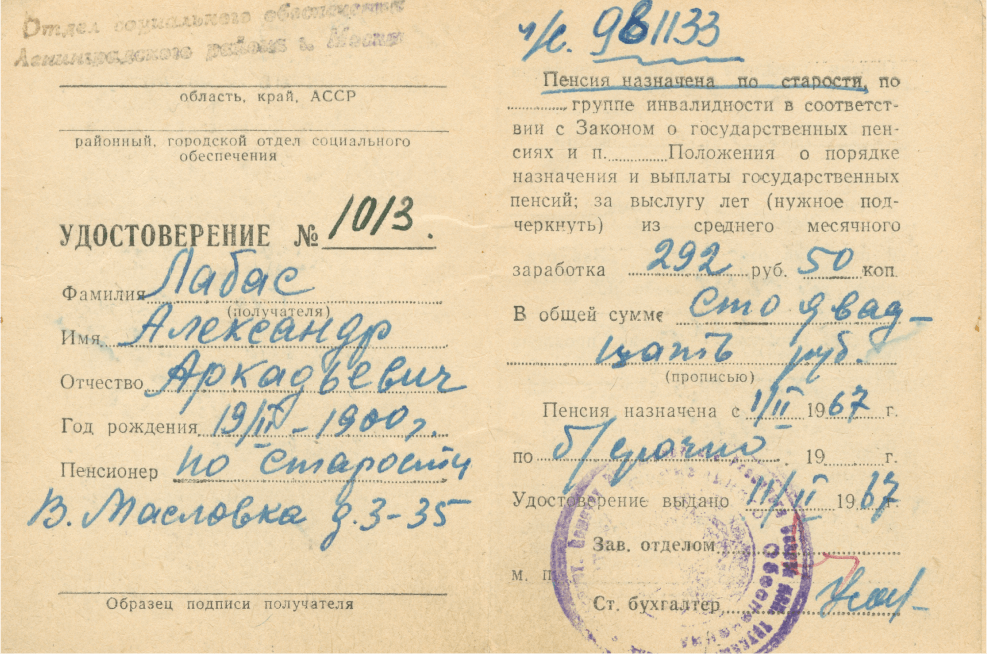 Отдел социального обеспечения
Ленинградского района г. Москвы
область, край, АССР
районный, городской отдел социального
обеспечения
УДОСТОВЕРЕНИЕ № 1013.
Фамилия Лабас
(получателя)
Имя Александр
Отчество Аркадьевич
Год рождения 19/II – 1900 г.
Пенсионер по старости
В. Масловка д. 3-35
Образец подписи получателя
ч/к. 981133
Пенсия назначена по старости, по
группе инвалидности в соответст-
вии с Законом о государственных пен-
сиях и п. Положения о порядке
назначения и выплаты государственных
пенсий; за выслугу лет (нужное под-
черкнуть) из среднего месячного
заработка 292 руб. 50 коп
В общей сумме Сто двад-
цать руб.
(прописью)
Пенсия назначена с 1/II 1967 г.
по б/срочно 19 г.
Удостоверение выдано 11/II 1967 г.
Зав. отделом
м. п.
Ст. бухгалтер